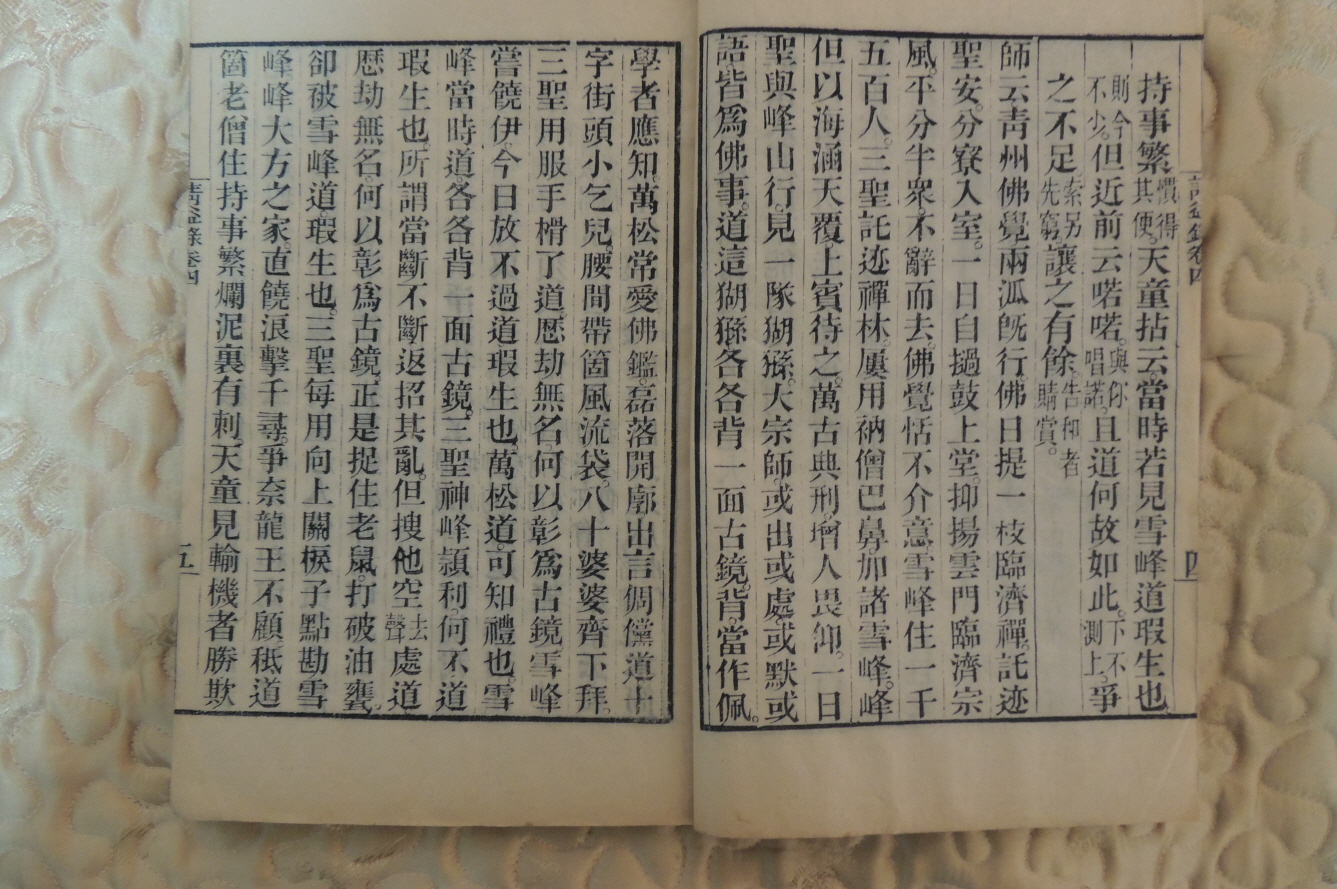 請益錄卷四
四
持事繁慣得其便。天童拈云當時若見雪峰道瑕生也
則今不少。但近前云喏喏。與你唱諾。且道何故如此。下不測上。爭
之不足索另先窮讓之有餘告和者賭賞。
師云靑州佛覺兩泒旣行佛日提一枝臨濟禪。託迹
聖安。分寮入室。一日自撾鼓上堂。抑揚雲門臨濟宗
風。平分半衆。不辭而去。佛覺恬不介意雪峰住一千
五百人。三聖託迹禪林。屢用衲僧巴鼻加諸雪峰。峰
但以海涵天覆上賓待之。萬古典刑。增人畏仰。一日
聖與峰山行。見一隊猢猻。大宗師。或出或處。或默或
語皆爲佛事。道這猢猻各各背一面古鏡。背。當作佩。
學者應知。萬松常愛佛鑑。磊落開廓出言倜儻道十
字街頭小乞兒。腰間帶箇風流袋。八十婆婆齊下拜。
三聖用服手榾了道。歷劫無名。何以彰爲古鏡。雪峰
嘗饒伊。今日放不過道瑕生也萬松道。可知禮也。雪
峰當時道。各各背一面古鏡。三聖神峰頴利。何不道
瑕生也。所謂當斷不斷返招其亂。但搜他空去聲處道
歷劫無名。何以彰爲古鏡。正是捉住老鼠。打破油甕。
卻破雪峰道瑕生也。三聖每用向上關棙子點勘雪
峰峰大方之家。直饒浪擊千尋。爭奈龍王不顧秪道
箇老僧住持事繁爛泥裏有刺天童見輸機者勝欺
請益錄卷四
五